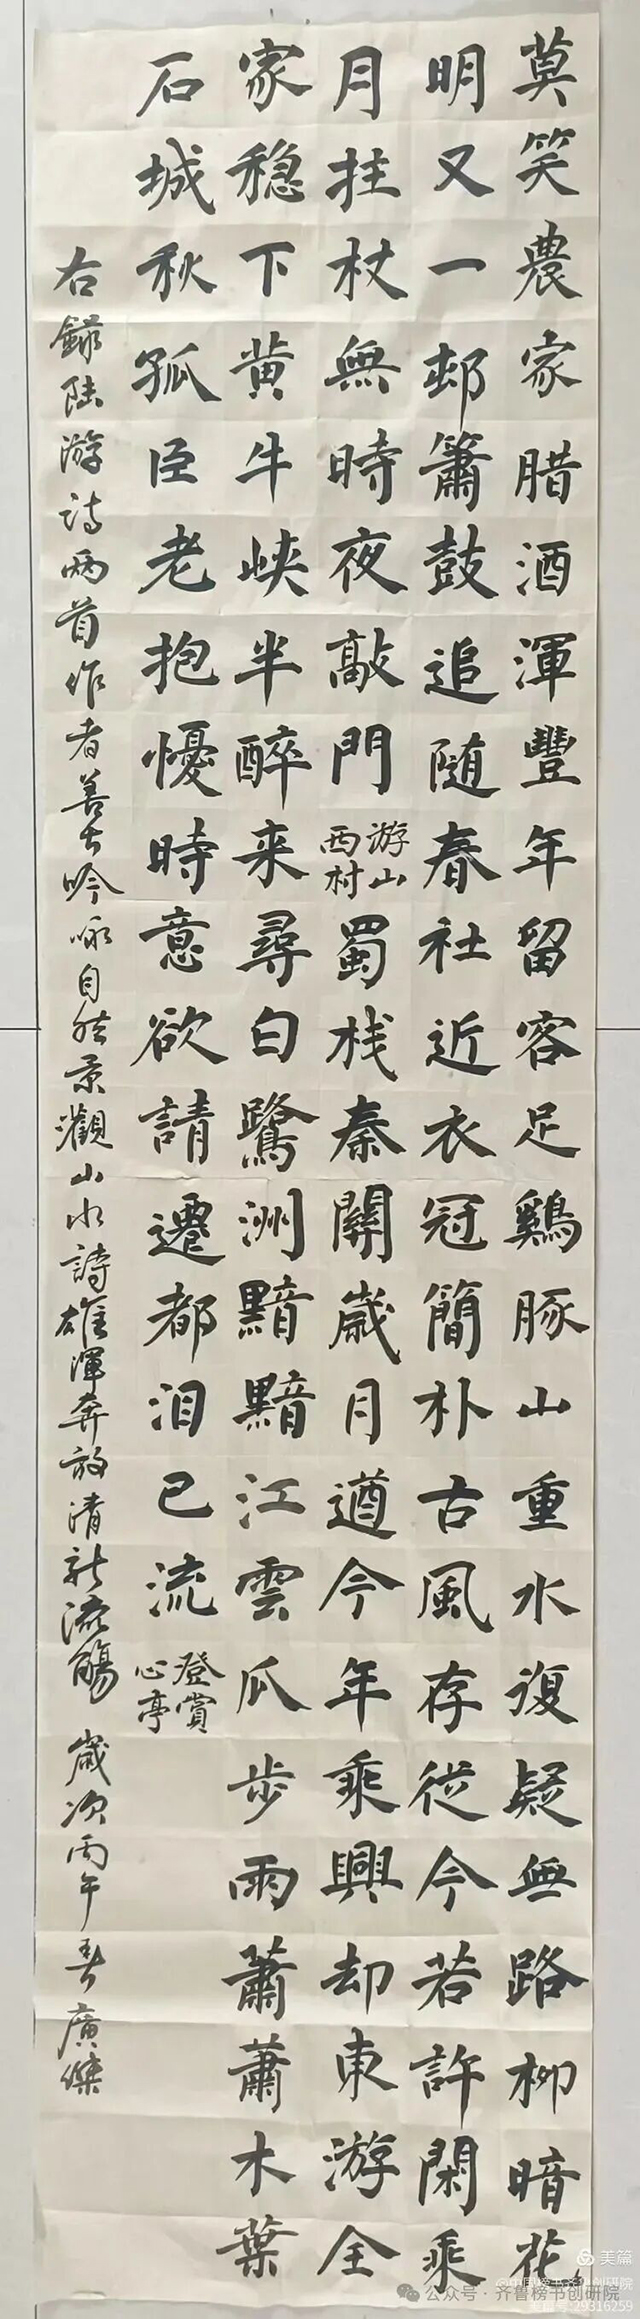 莫笑農家腊酒渾豐年留客足鷄豚山重水複疑無路柳暗花
明又一邨簫鼓追随春社近衣冠簡朴古風存從今若許閑乘
月拄杖無時夜敲門
游山
西村
蜀栈秦關歲月遒今年乘興却東游全
家稳下黄牛峡半醉来尋白鷺洲黯黯江雲瓜步雨蕭蕭木葉
石城秋孤臣老抱憂時意欲請遷都泪已流
登賞
心亭
右錄陆游诗两首作者善于吟咏自然景觀山水詩雄渾奔放清新流暢 歲次丙午春廣傑
美篇
公众号·齐鲁榜书创研院